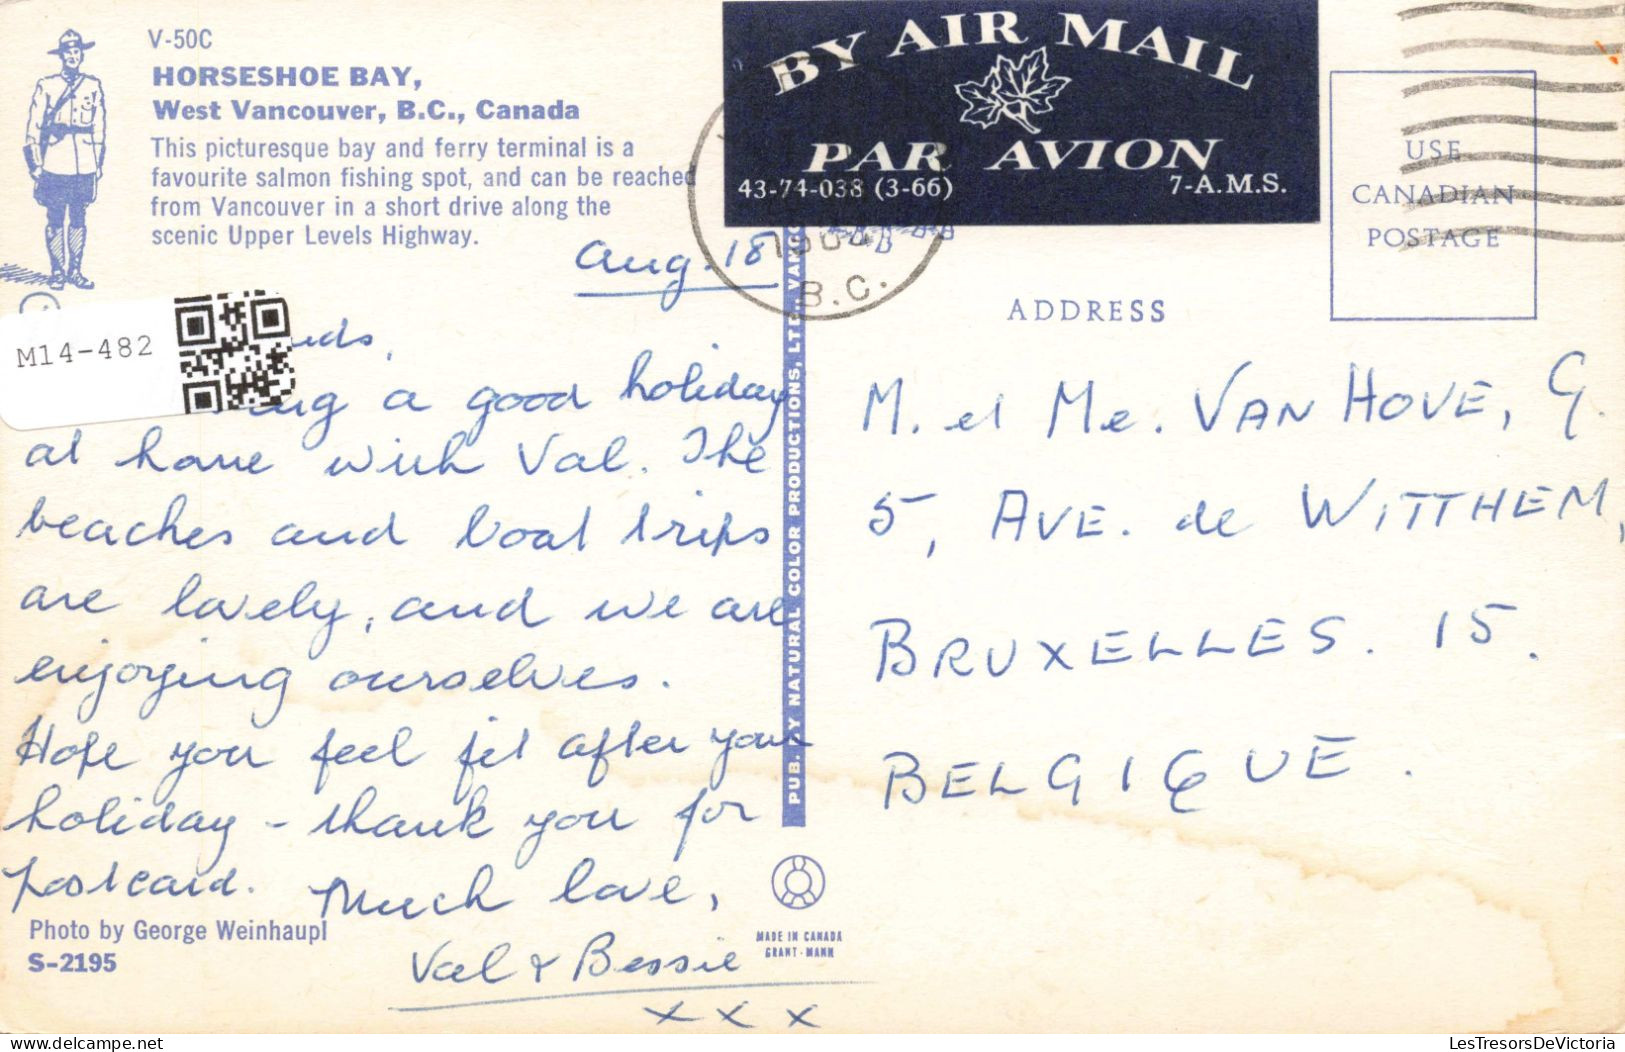 V-50C
HORSESHOE BAY,
West Vancouver, B.C., Canada
This picturesque bay and ferry terminal is a
favourite salmon fishing spot, and can be reached
from Vancouver in a short drive along the
scenic Upper Levels Highway.
Aug. 18
M14-482
a good holiday
at home with Val. The
beaches and boat trips
are lovely, and we are
enjoying ourselves.
Hope you feel fit after your
holiday - thank you for
postcard. Much love,
Val & Bessie
x x x
Photo by George Weinhaupl
S-2195
PUB. BY NATURAL COLOR PRODUCTIONS, LTD., VANC
MADE IN CANADA
GRANT-MANN
BY AIR MAIL
PAR AVION
43-74-038 (3-66)
7-A.M.S.
B.C.
USE
CANADIAN
POSTAGE
ADDRESS
M. et Me. VAN HOVE, G.
5, AVE. de WITTHEM,
BRUXELLES. 15.
BELGIQUE.
LesTresorsDeVictoria.com
LesTresorsDeVictoria